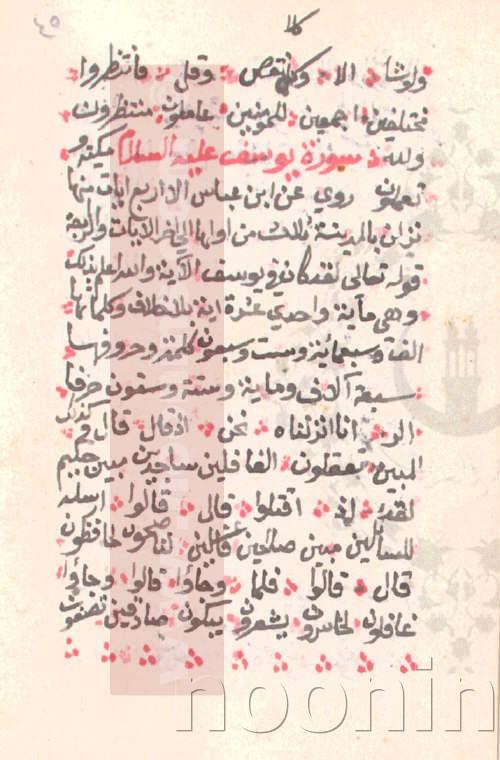 ٤٥
ولوشا الا وكلا نقص وقل وانتظروا
مختلفين اجمعين للمومنين عاملون منتظرون
ولله سورة يوسف عليه السلام مكية و
تعملون روي عن ابن عباس الا اربع ايات منها
نزلن بالمدينة ثلاث من اولها الى اخر الايات والرابعة
قوله تعالى لقد كان في يوسف الآية والله اعلم بذلك
وهي ماية واحدي عشرة اية بلا خلاف وكلماتها
الف وسبعماية وست وسبعون كلمة وحروفها
سبعة آلاف وماية وستة وستون حرفا
الر انا انزلناه نحن اذ قال قال وكذلك
المبين تعقلون الغافلين ساجدين مبين حكيم
لقد اذ اقتلوا قال قالوا ارسله
للسائلين مبين صالحين فاعلين لناصحون لحافظون
قال قالوا فلما وجاؤا قالوا وجاؤا
غافلون لخاسرون يشعرون يبكون صادقين تصفون
noonin